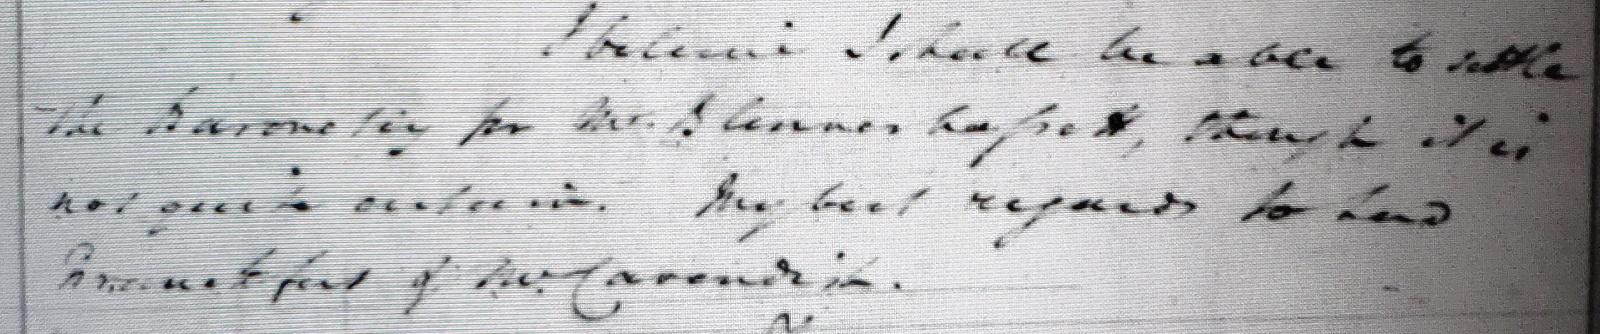 I believe I shall be able to settle
the Baronetcy for Mr. Blennerhassett, though it is
not quite certain. My best regards to Lord
& Mr. Cavendish.